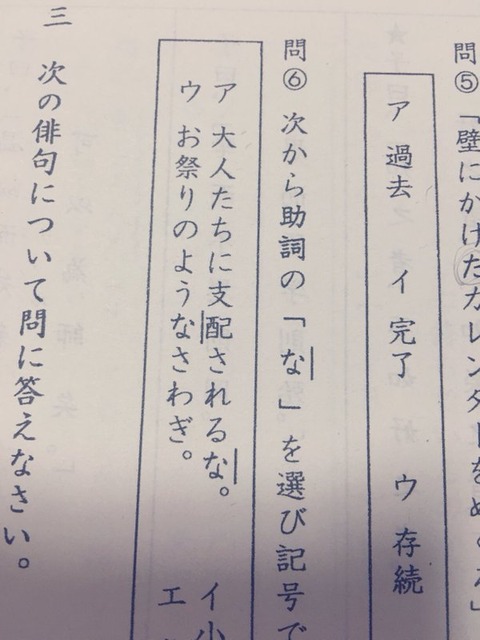 問⑤ 「壁にかけたカレンダーをめくる」
ア 過去 イ 完了 ウ 存続
問⑥ 次から助詞の「な」を選び記号で
ア 大人たちに支配されるな。 イ 小
ウ お祭りのようなさわぎ。 エ
三 次の俳句について問に答えなさい。